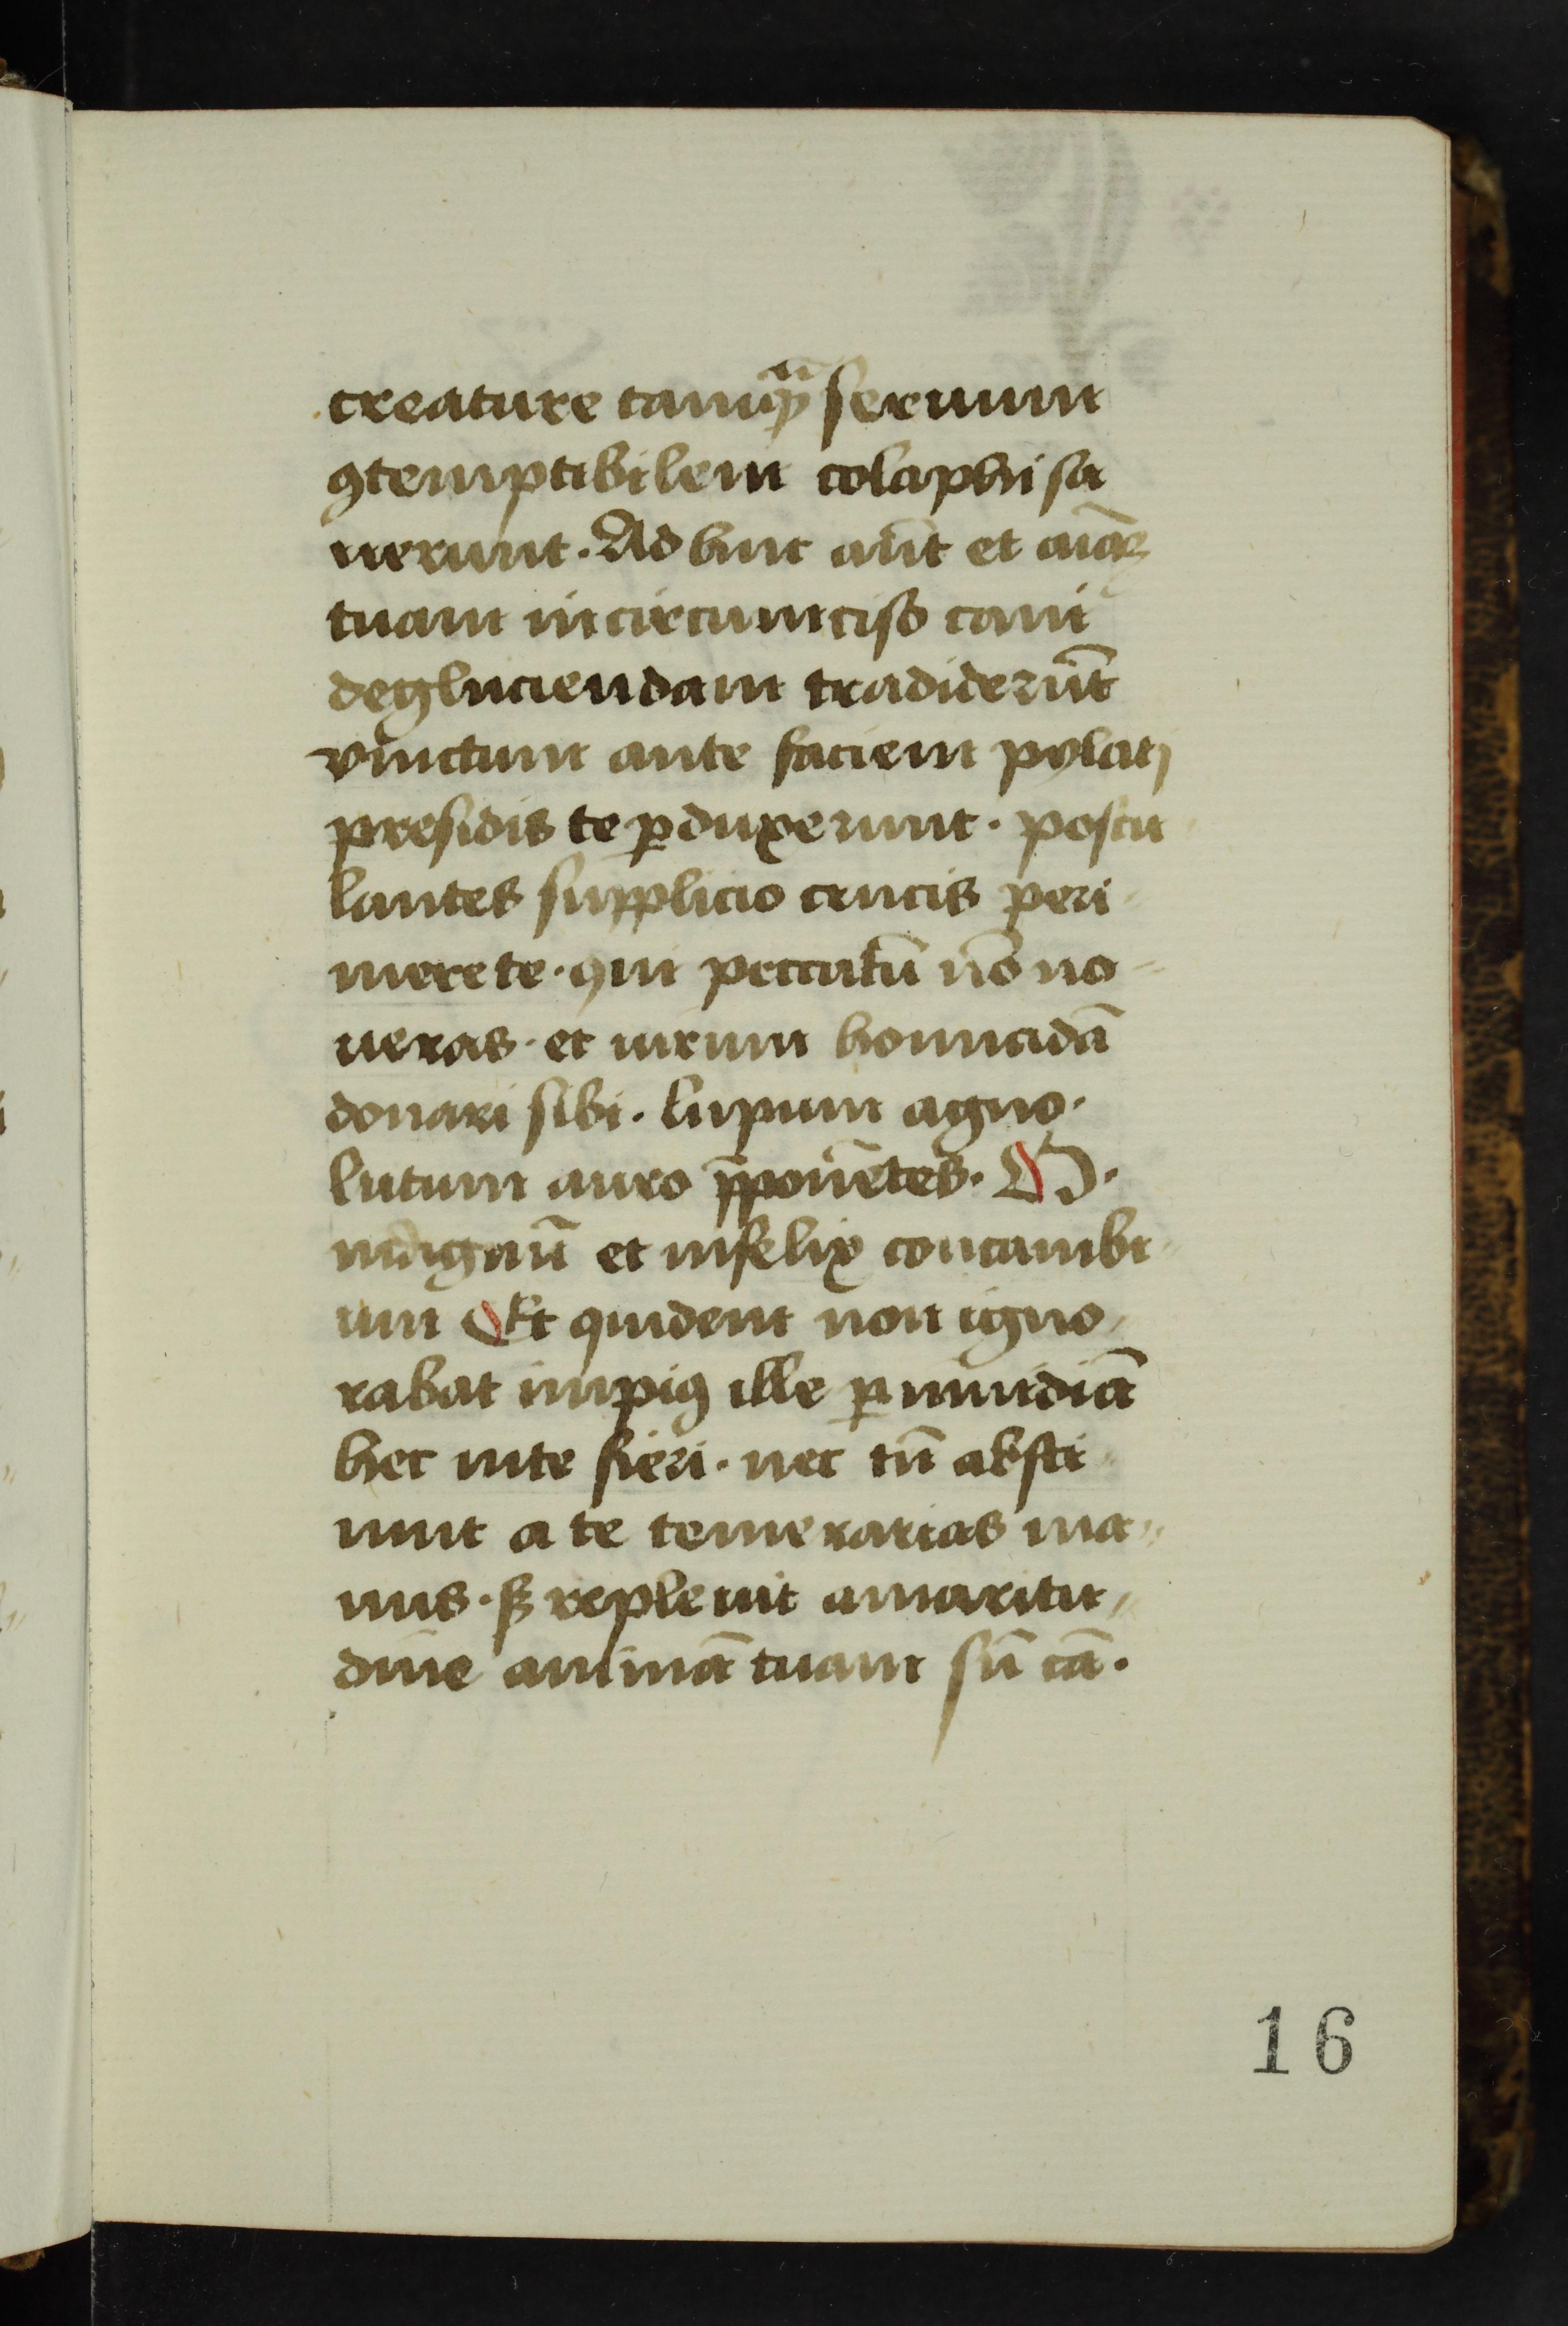 creature tamqᷓꝫ seruum
ꝯtemptibilem colaphisa
uerunt. Ad huc aūt et aīaꝫ
tuam incircumciso cani
degluciendam tradiderūt
vinctum ante faciem pylatj
presidis te ꝑduxerunt. postu
lantes supplicio crucis peri
mere te. qui peccatū nō no-
ueras. et uirum homicidā
donari sibi. lupum agno.
lutum auro p̄ponētes. O.
indignū et infelix concambi
um Et quidem non igno
rabat impiꝰ ille ꝑ inuidiā
hec in te fieri. nec tn̄ absti
nuit a te temerarias ma
nus. sꝫ repleuit amaritu
dīne animā tuam sn̄ cā.
16